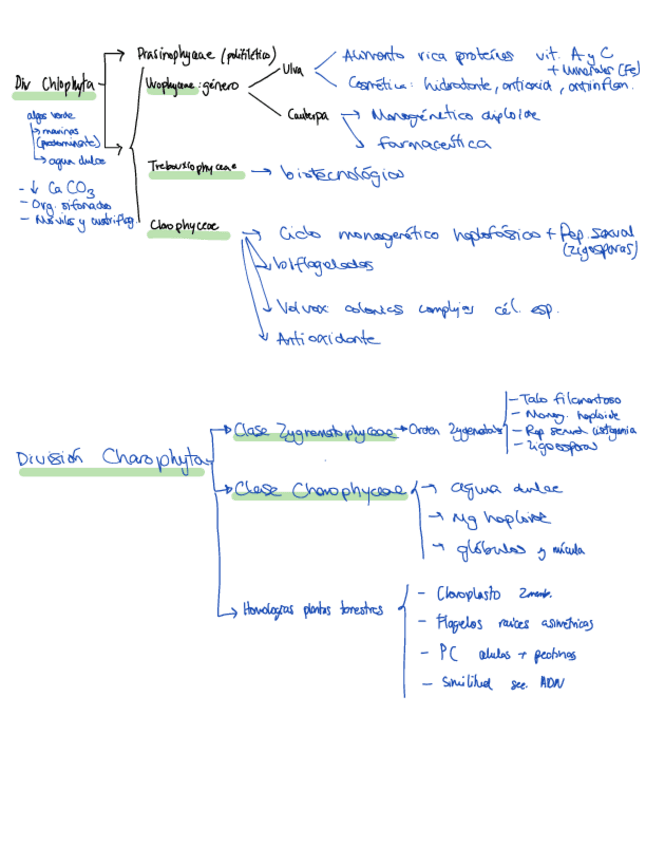 Prasinophyceae (polifilético)
Div Chlophyta
Ulvophyceae: género
Ulva
Aumento rica proteínas vit. A y C
+ Minerales (Fe)
Cosmética: hidratante, antioxid, antiinflam.
Cauterpa
Monogenético diploide
farmaceútica
algas verde
marinas
(predominante)
agua dulce
- ↓ CaCO3
- Org. sifonados
- Móviles y cuatriflag.
Trebouxiophyceae → biotecnológico
Clorophyceae → Ciclo monogenético haplofásico + Rep. sexual
(zigosporas)
biflagelados
Volvox colonias complejas cél. esp.
Antioxidante
División Charophyta
Clase Zygnematophyceae → Orden Zygnematales
- Talo filamentoso
- Monog. haploide
- Rep sexual
- Zigosporas
Clase Charophyceae
→ agua dulce
→ Mg haploide
→ glóbulos y núcula
Homologías plantas terrestres
- Cloroplasto 2 memb.
- Flagelos raíces asimétricas
- PC celulos + pectinas
- Similitud sec. ADN